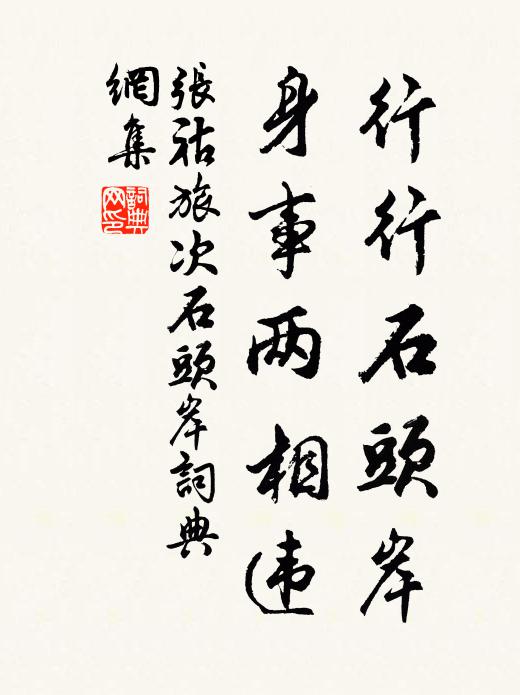 行行石頭岸
身事两相违
張祜旅次石頭岸詞典
網集
詞典
网印